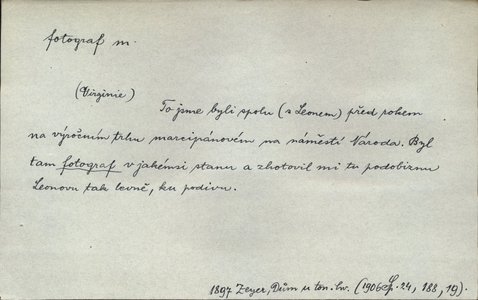 fotograf m.
(Virginie)
To jsme byli spolu (s Leonem) před rokem
na výročním trhu marcipánovém na náměstí Národa. Byl
tam fotograf v jakémsi stanu a zhotovil mi tu podobiznu
Leonovu tak levně, ku podivu.
1897 Zeyer, Dům u ton. hv. (1906 Sp. 24, 188, 19).